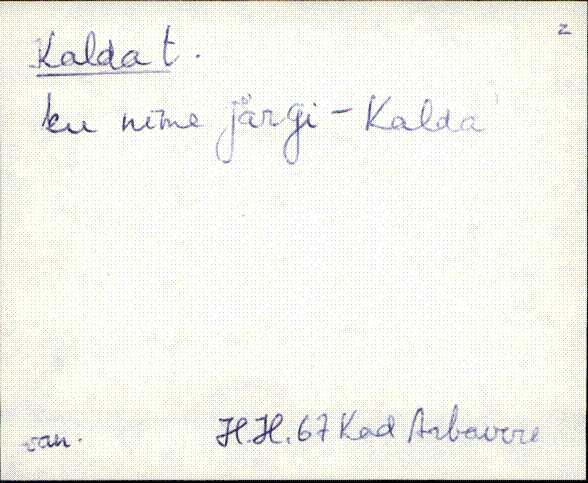 z
Kalda t.
ku nime järgi - Kalda
van.
H.H. 67 Kad Arbavere